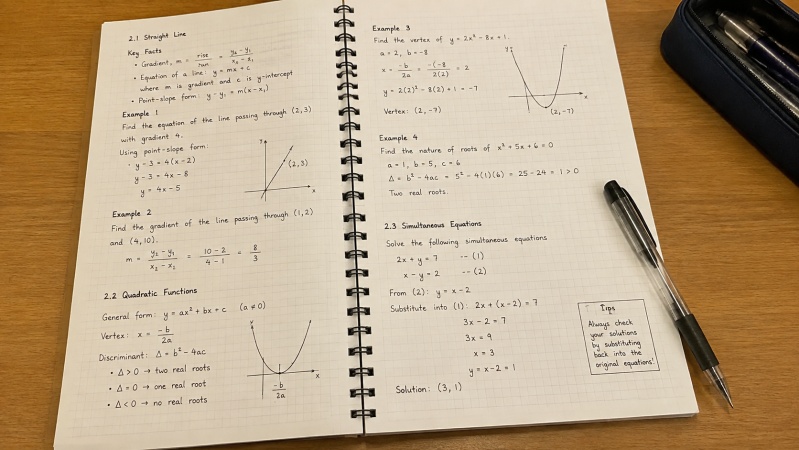 2.1 Straight Line
Key Facts
• Gradient, m = rise/run = y₂ - y₁/x₂ - x₁
• Equation of a line: y = mx + c
where m is gradient and c is y-intercept
• Point-slope form: y - y₁ = m(x - x₁)
Example 1
Find the equation of the line passing through (2,3)
with gradient 4.
Using point-slope form:
y - 3 = 4(x - 2)
y - 3 = 4x - 8
y = 4x - 5
y
(2,3)
x
Example 2
Find the gradient of the line passing through (1,2)
and (4,10).
m = y₂ - y₁/x₂ - x₁ = 10 - 2/4 - 1 = 8/3
2.2 Quadratic Functions
General form: y = ax² + bx + c (a ≠ 0)
Vertex: x = -b/2a
Discriminant: Δ = b² - 4ac
• Δ > 0 → two real roots
• Δ = 0 → one real root
• Δ < 0 → no real roots
y
x
-b/2a
Example 3
Find the vertex of y = 2x² - 8x + 1.
a = 2, b = -8
x = -b/2a = -(-8/2(2) = 2
y = 2(2)² - 8(2) + 1 = -7
Vertex: (2, -7)
y
x
(2, -7)
Example 4
Find the nature of roots of x² + 5x + 6 = 0
a = 1, b = 5, c = 6
Δ = b² - 4ac = 5² - 4(1)(6) = 25 - 24 = 1 > 0
Two real roots.
2.3 Simultaneous Equations
Solve the following simultaneous equations
2x + y = 7 -- (1)
x - y = 2 -- (2)
From (2): y = x - 2
Substitute into (1): 2x + (x - 2) = 7
3x - 2 = 7
3x = 9
x = 3
y = x - 2 = 1
Solution: (3, 1)
Tips
Always check
your solutions
by substituting
back into the
original equations!